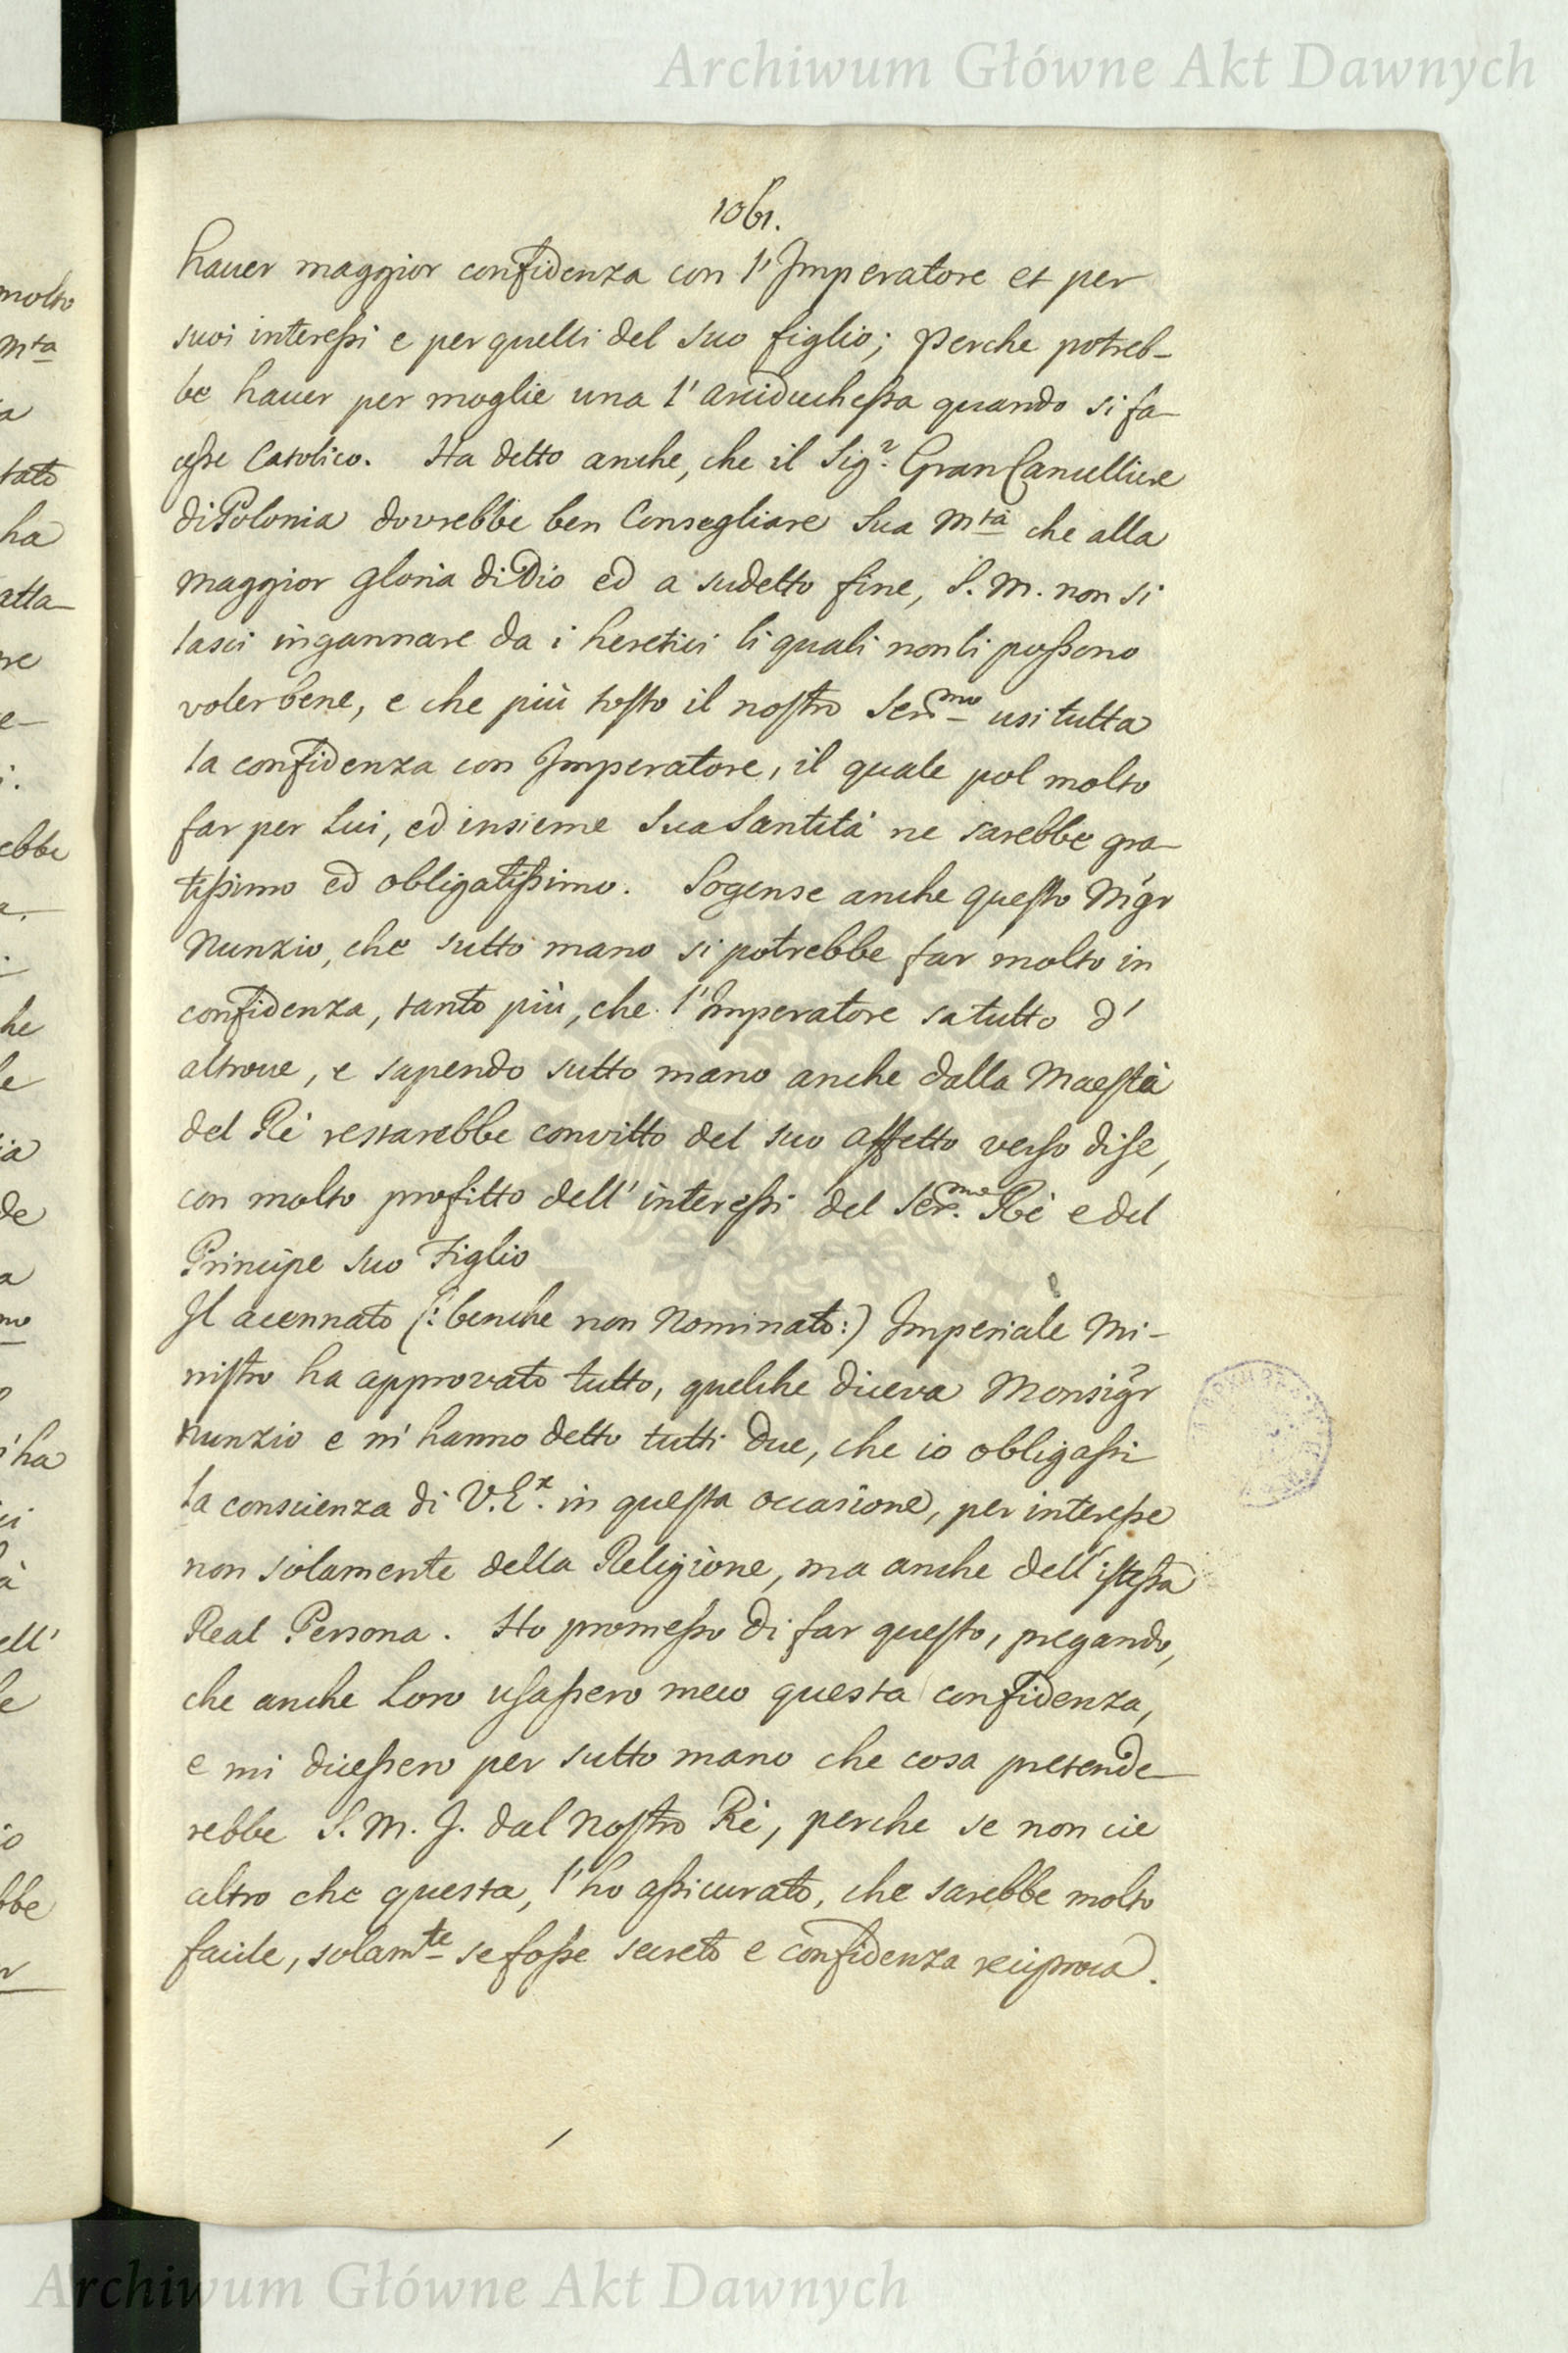 Archiwum Główne Akt Dawnych
1061.
hauer maggior confidenza con l'Imperatore et per
suoi interessi e per quelli del suo figlio; perche potreb-
be hauer per moglie una l'arciduchessa quando si fa-
cesse Catolico. Ha detto anche, che il Sig.r Gran Cancelliere
di Polonia dovrebbe ben Consegliare Sua Mtà che alla
maggior gloria di Dio ed a sudetto fine, S. M. non si
lasci ingannare da i heretici li quali non li possono
voler bene, e che più tosto il nostro Sermo usi tutta
la confidenza con Imperatore, il quale pol molto
far per Lui, ed insieme Sua Santità ne sarebbe gra-
tissimo ed obligatissimo. Sogense anche questo Mgr
Nunzio, che sutto mano si potrebbe far molto in
confidenza, tanto più, che l'Imperatore sa tutto d'
altroue, e sapendo sutto mano anche dalla Maestà
del Rè restarebbe convitto del suo affetto verso di se,
con molto profitto dell'interessi del Ser.mo Rè e del
Principe suo Figlio
Il acennato (: benche non Nominato:) Imperiale Mi-
nistro ha approvato tutto, quelche diceva Monsigr
Nunzio e m'hanno detto tutti due, che io obligassi
la conscienza di V. E.x in questa occasione, per interesse
non solamente della Religione, ma anche dell'istessa
Real Persona. Ho promesso di far questo, pregando,
che anche Loro usassero meco questa confidenza,
e mi dicessero per sutto mano che cosa pretende-
rebbe S. M. I. dal Nostro Rè, perche se non cie
altro che questa, l'ho assicurato, che sarebbe molto
facile, solamte se fosse secreto e confidenza reciproca.
Archiwum Główne Akt Dawnych